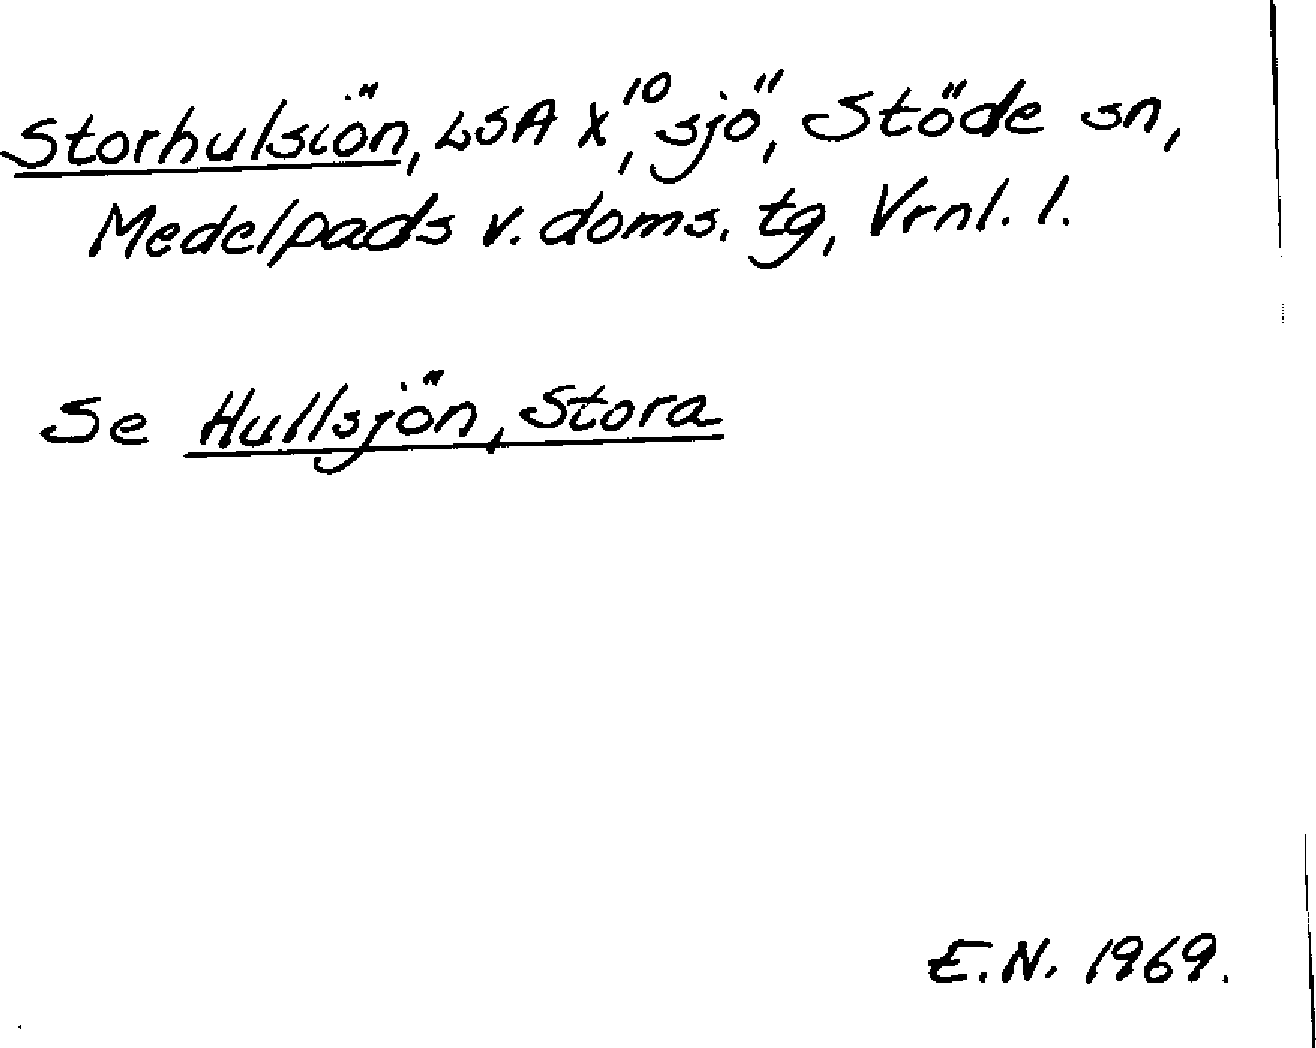 Storhulsiön, LSA X¹⁰, sjö", Stöde sn,
Medelpads v. doms. tg, Vrnl. l.
Se Hullsjön, Stora
E.N. 1969.